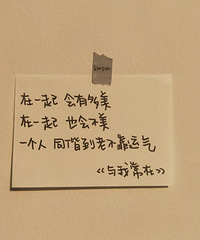 在一起 会有多美
在一起 也会不美
一个人 同偕到老不靠运气
《与我常在》